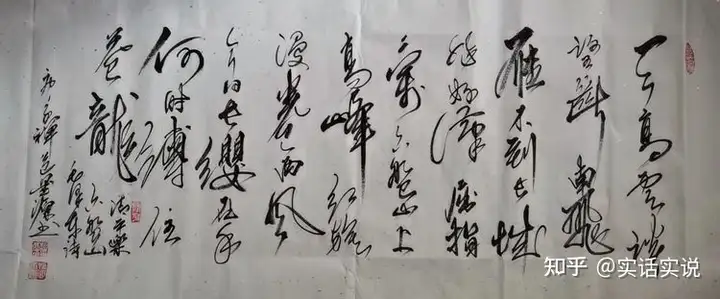 天高雲淡
望断南飛
雁不到长城
非好漢屈指
萬六盘山上
高峰红旗
漫卷西风
今日长缨在手
何时缚住
苍龍
清平樂
六盘山
毛泽东诗
知乎 @实话实说